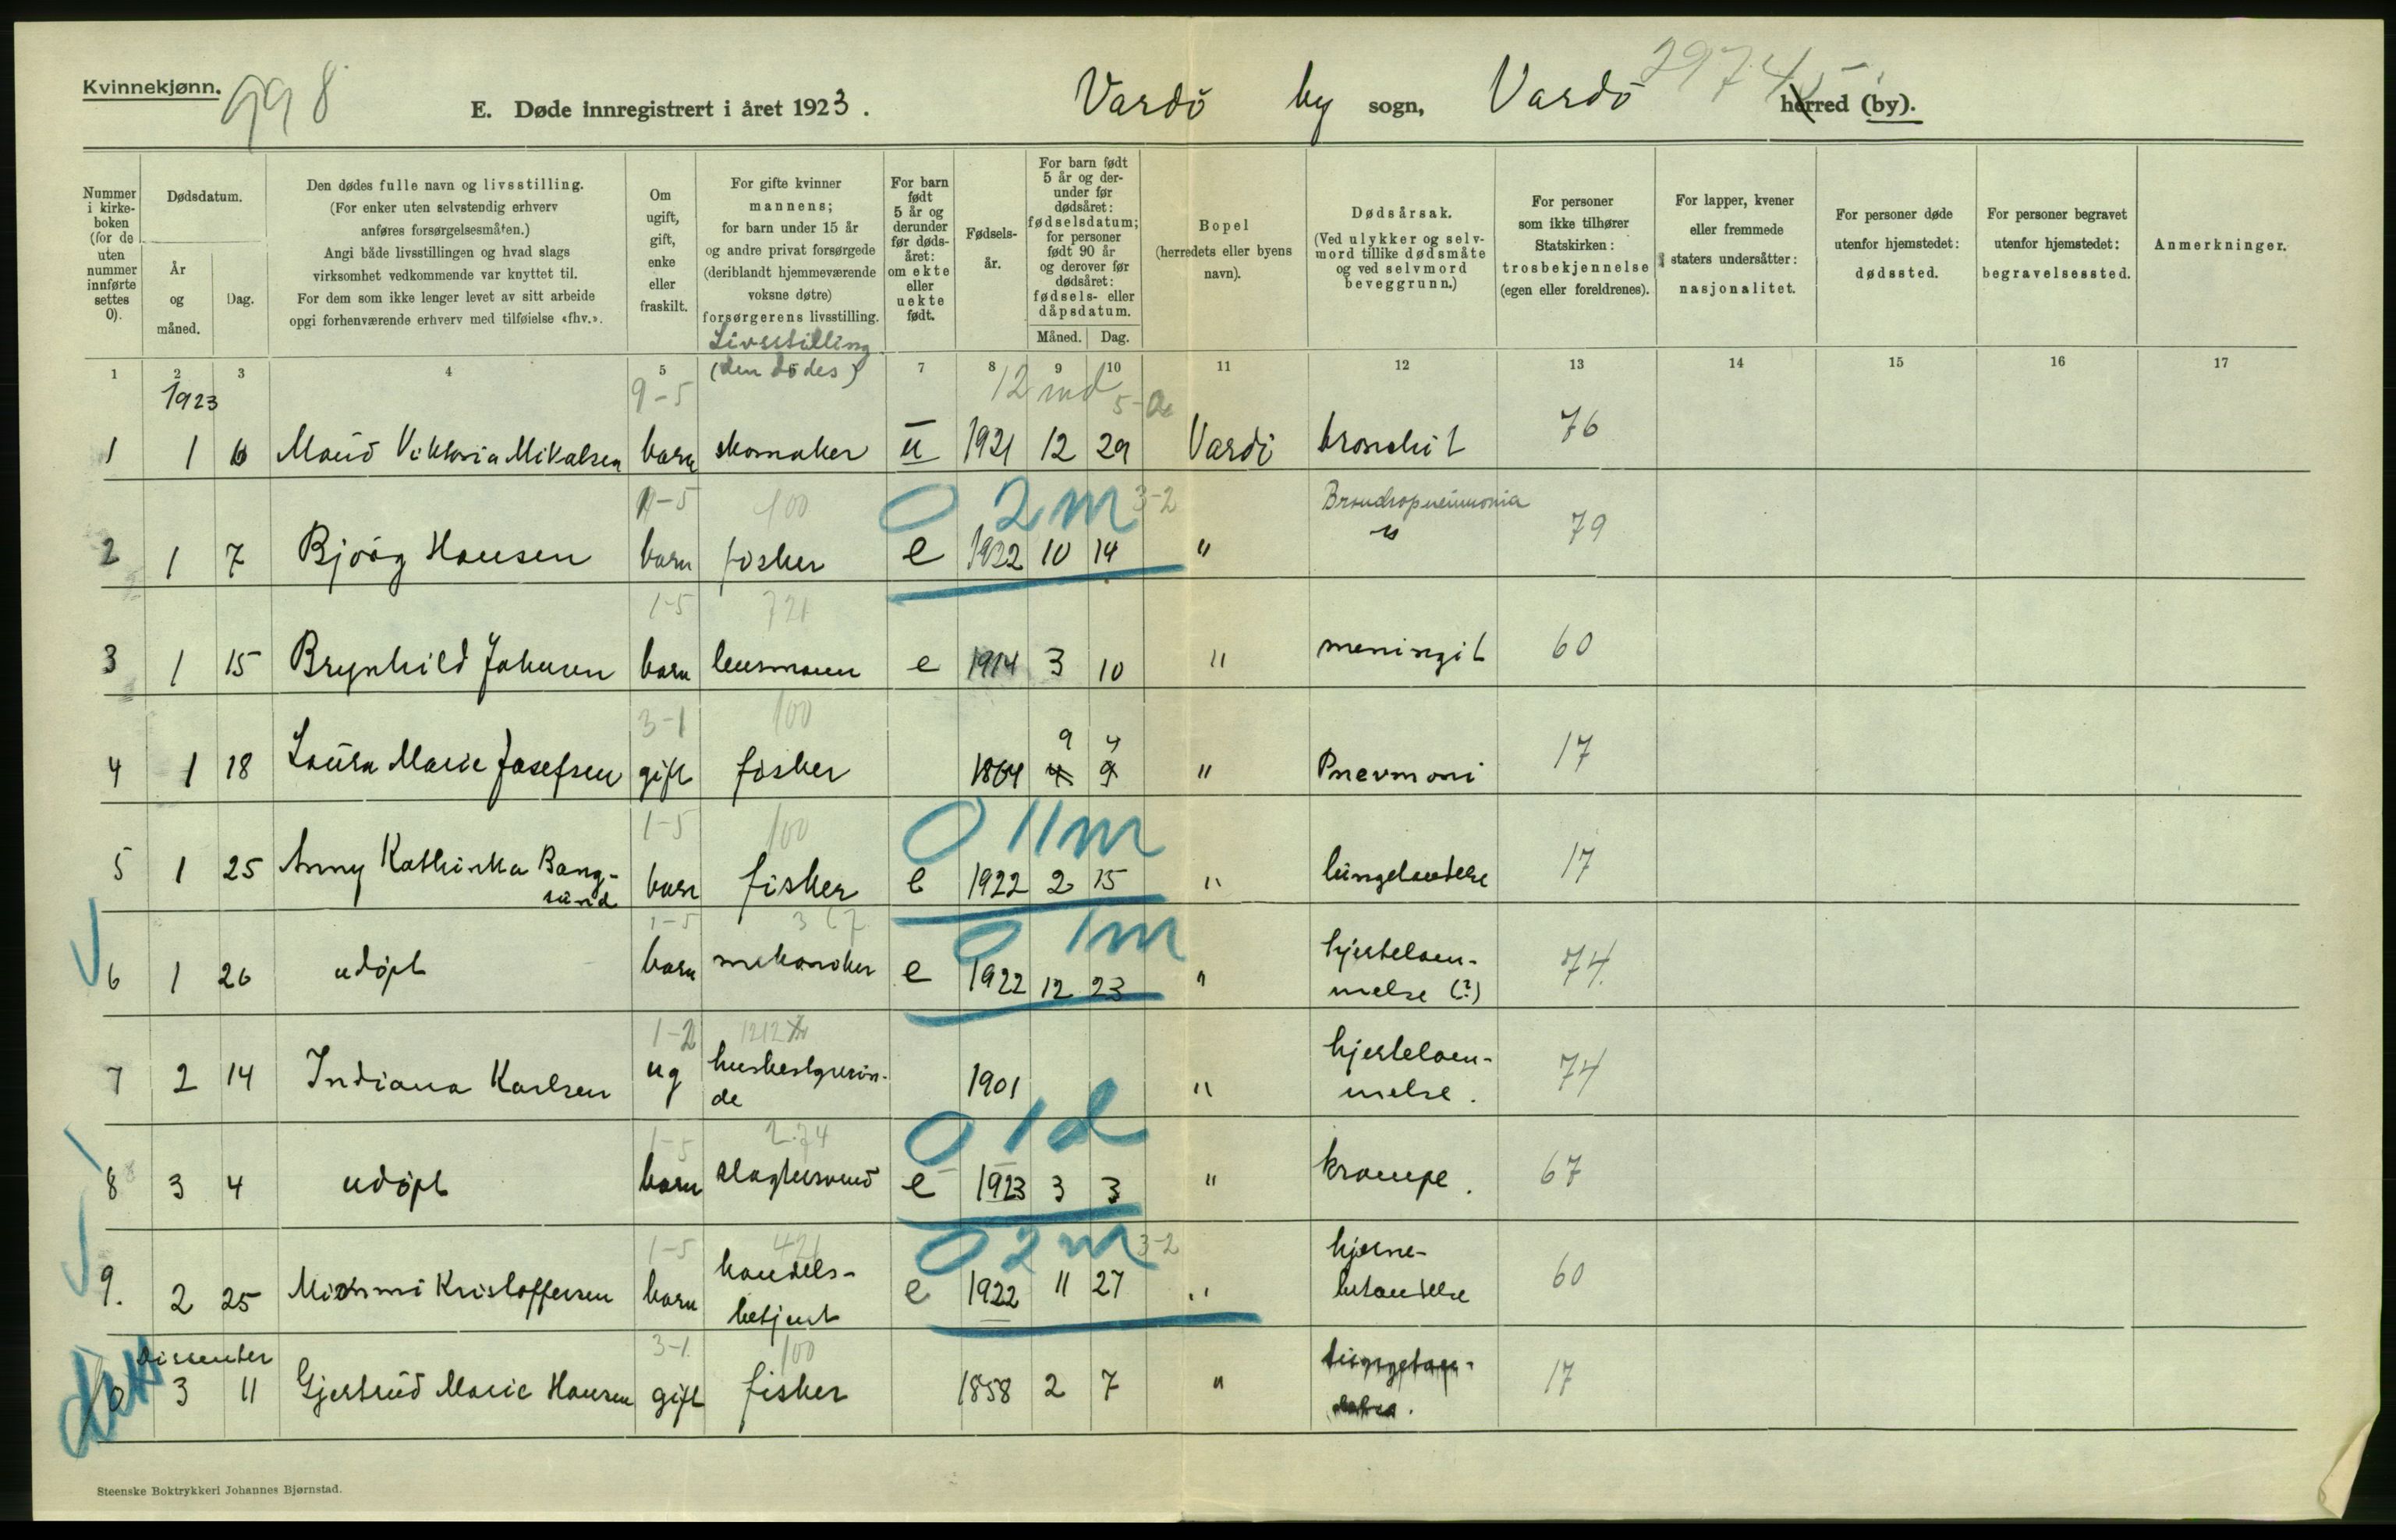 Kvinnekjønn.
998
E. Døde innregistrert i året 1923.
Vardö by sogn, Vardö herred (by).
2974
Nummer i kirke-boken (for de uten nummer innførte settes 0).
Dødsdatum.
År og måned.
Dag.
Den dødes fulle navn og livsstilling.
(For enker uten selvstendig erhverv
anføres forsørgelsesmåten.)
Angi både livsstillingen og hvad slags
virksomhet vedkommende var knyttet til.
For dem som ikke lenger levet av sitt arbeide
opgi forhenværende erhverv med tilføielse «fhv.».
Om ugift, gift, enke eller fraskilt.
For gifte kvinner
mannens;
for barn under 15 år
og andre privat forsørgede
(deriblandt hjemmeværende
voksne døtre)
forsørgerens livsstilling.
Livsstilling
(den dödes)
For barn født 5 år og derunder før døds-året: om ekte eller uekte født.
Fødsels-år.
For barn født 5 år og der-under før dødsåret: fødselsdatum; for personer født 90 år og derover før dødsåret: fødsels- eller dåpsdatum.
Måned. Dag.
Bopel
(herredets eller byens
navn).
Dødsårsak.
(Ved ulykker og selv-
mord tillike dødsmåte
og ved selvmord
beveggrunn.)
For personer
som ikke tilhører
Statskirken:
trosbekjennelse
(egen eller foreldrenes).
For lapper, kvener
eller fremmede
staters undersåtter:
nasjonalitet.
For personer døde
utenfor hjemstedet:
dødssted.
For personer begravet
utenfor hjemstedet:
begravelsessted.
Anmerkninger.
1 2 3 4 5 7 8 9 10 11 12 13 14 15 16 17
1923
9-5 12 md
1 1 6 Maud Viktoria Mikalsen barn skomaker u 1921 12 29 Vardö bronchit 76
1-5 100 0 2m 3-2 Bronchopneumonia
2 1 7 Bjorg Hansen barn fisker e 1922 10 14 " 79
1-5 721
3 1 15 Brynhild Johnsen barn lensmann e 1914 3 10 " meningit 60
3-1 100 9 4
4 1 18 Laura Marie Josefsen gift fisker 1864 4 9 " Pnevmoni 17
1-5 100 0 11m
5 1 25 Anny Kathinka Bang-
sund barn fisker e 1922 2 15 " lungebetendelse 17
1-5 0 1m
6 1 26 udöpt barn mekaniker e 1922 12 23 " hjertelam-
melse (?) 74
1-2 1212
7 2 14 Indiana Karlsen ug husbestyrerin-
de 1901 " hjertelam-
melse. 74
1-5 274 0 1d
8 3 4 udöpt barn slagtersvend e 1923 3 3 " krampe. 67
1-5 421 0 2m 3-2
9. 2 25 Mimmi Kristoffersen barn handels-
betjent e 1922 11 27 " hjerne-
betendelse 60
Dissenter 3-1 100
3 11 Gjertrud Marie Hansen gift fisker 1858 2 7 " 17
Steenske Boktrykkeri Johannes Bjørnstad.